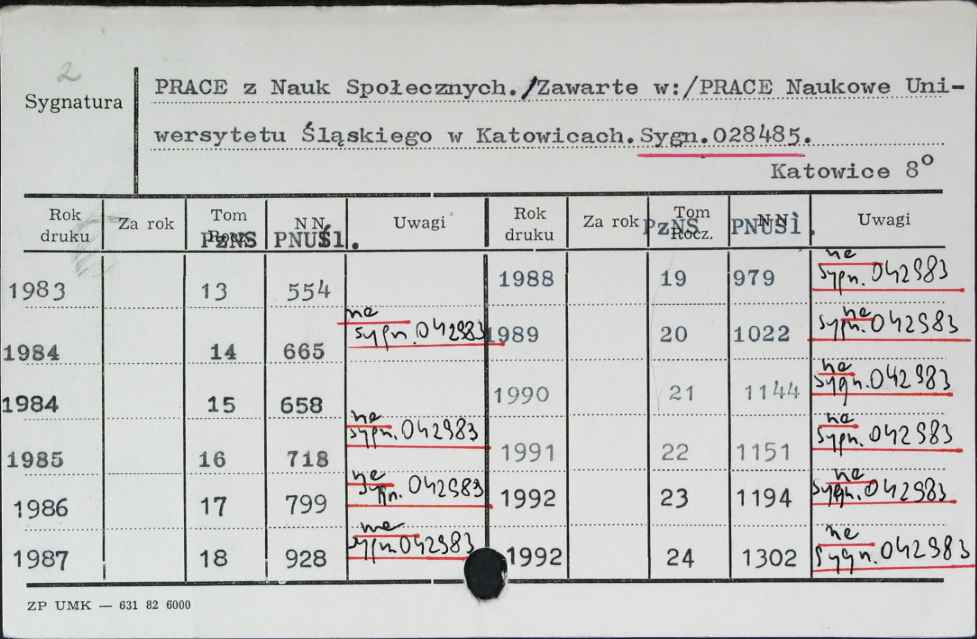 2
Sygnatura
PRACE z Nauk Społecznych./Zawarte w:/PRACE Naukowe Uni-
wersytetu Śląskiego w Katowicach. Sygn.028485.
Katowice 8°
Rok druku Za rok Tom Rocz. PzNS NN. PNUŚl. Uwagi Rok druku Za rok Tom Rocz. PzNS NN. PNUŚl. Uwagi
1983 13 554
1984 14 665 na sygn. 042983
1984 15 658
1985 16 718 na sygn. 042983
1986 17 799 na sygn. 042983
1987 18 928 na sygn. 042983
1988 19 979 na sygn. 042983
1989 20 1022 na sygn. 042983
1990 21 1144 na sygn. 042983
1991 22 1151 na sygn. 042983
1992 23 1194 na sygn. 042983
1992 24 1302 na sygn. 042983
ZP UMK — 631 82 6000